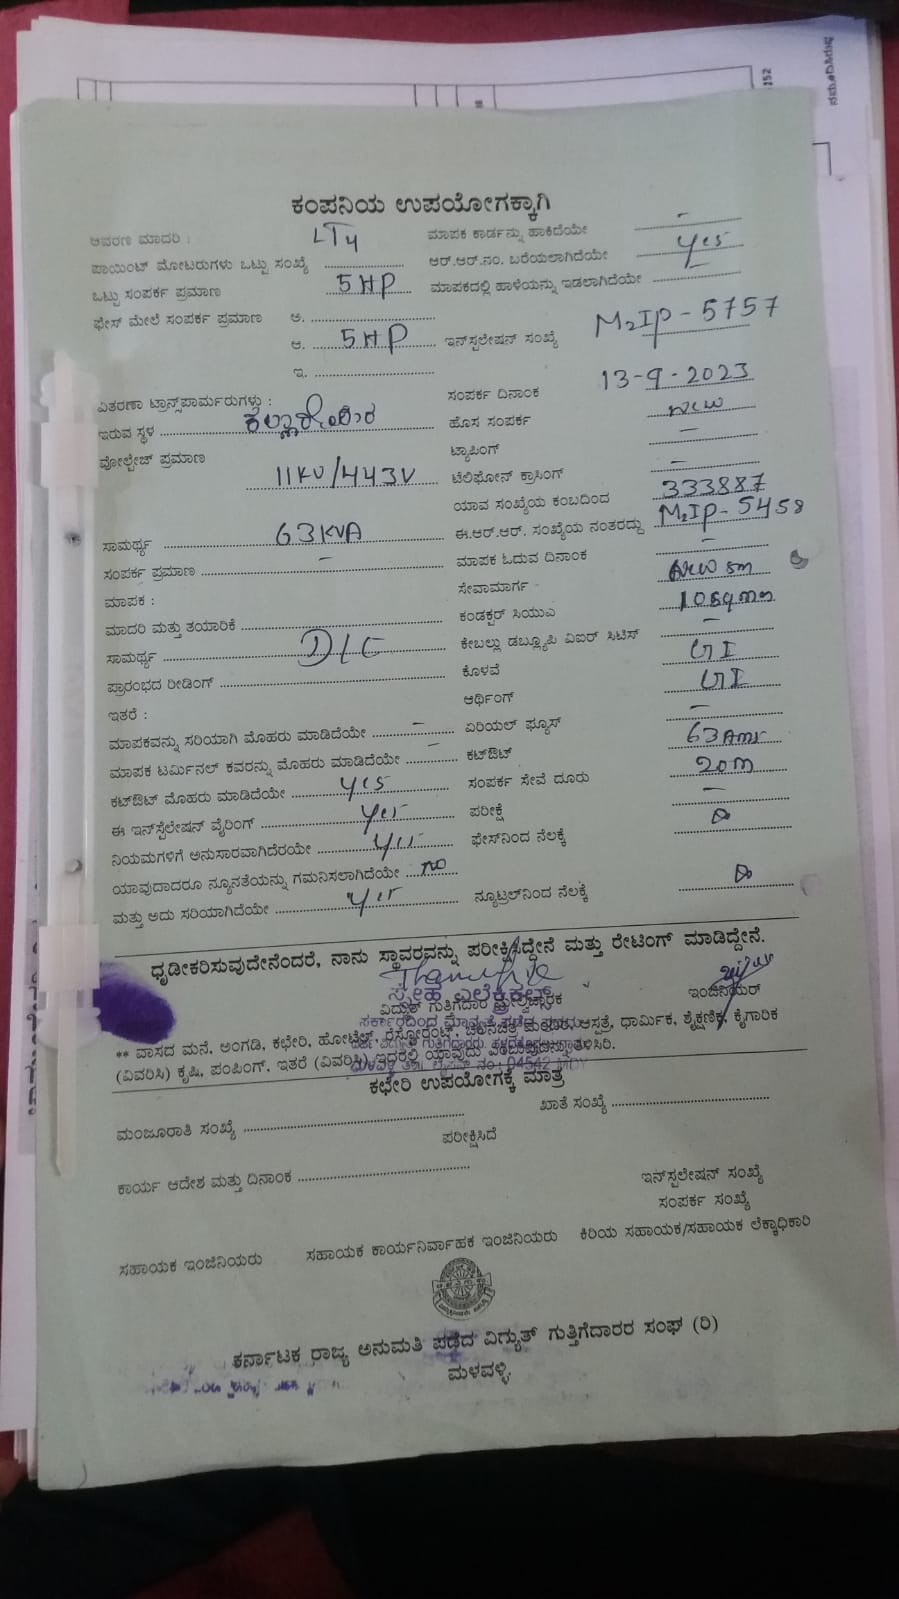 252
ಕಂಪನಿಯ ಉಪಯೋಗಕ್ಕಾಗಿ
ಆವರಣ ಮಾದರಿ : LT4 ಮಾಪಕ ಕಾರ್ಡನ್ನು ಹಾಕಿದೆಯೇ -
ಪಾಯಿಂಟ್ ಮೋಟರುಗಳು ಒಟ್ಟು ಸಂಖ್ಯೆ ಆರ್.ಆರ್.ನಂ. ಬರೆಯಲಾಗಿದೆಯೇ Yes
ಒಟ್ಟು ಸಂಪರ್ಕ ಪ್ರಮಾಣ 5HP ಮಾಪಕದಲ್ಲಿ ಹಾಳೆಯನ್ನು ಇಡಲಾಗಿದೆಯೇ -
ಫೇಸ್ ಮೇಲೆ ಸಂಪರ್ಕ ಪ್ರಮಾಣ ಅ.
ಆ. 5HP ಇನ್‌ಸ್ಟಲೇಷನ್ ಸಂಖ್ಯೆ M2IP-5757
ಇ.
ವಿತರಣಾ ಟ್ರಾನ್ಸ್‌ಪಾರ್ಮರುಗಳು : ಸಂಪರ್ಕ ದಿನಾಂಕ 13-9-2023
ಇರುವ ಸ್ಥಳ ಹೊಸ ಸಂಪರ್ಕ new
ವೋಲ್ಟೇಜ್ ಪ್ರಮಾಣ 11KV/443V ಟ್ಯಾಪಿಂಗ್ -
ಟೆಲಿಫೋನ್ ಕ್ರಾಸಿಂಗ್ -
ಯಾವ ಸಂಖ್ಯೆಯ ಕಂಬದಿಂದ 333887
ಸಾಮರ್ಥ್ಯ 63KVA ಈ.ಆರ್.ಆರ್. ಸಂಖ್ಯೆಯ ನಂತರದ್ದು M2IP-5458
ಸಂಪರ್ಕ ಪ್ರಮಾಣ - ಮಾಪಕ ಓದುವ ದಿನಾಂಕ -
ಮಾಪಕ : ಸೇವಾಮಾರ್ಗ New sm
ಮಾದರಿ ಮತ್ತು ತಯಾರಿಕೆ ಕಂಡಕ್ಟರ್ ಸಿಯುವಿ 10sqmm
ಸಾಮರ್ಥ್ಯ D/C ಕೇಬಲ್ಲು ಡಬ್ಲ್ಯೂಪಿ ಎಐರ್ ಸಿಟಿಸ್ -
ಪ್ರಾರಂಭದ ರೀಡಿಂಗ್ ಕೊಳವೆ GI
ಇತರೆ : ಆರ್ಥಿಂಗ್ GI
ಮಾಪಕವನ್ನು ಸರಿಯಾಗಿ ಮೊಹರು ಮಾಡಿದೆಯೇ - ಏರಿಯಲ್ ಫ್ಯೂಸ್ -
ಮಾಪಕ ಟರ್ಮಿನಲ್ ಕವರನ್ನು ಮೊಹರು ಮಾಡಿದೆಯೇ - ಕಟ್‌ಔಟ್ 63Ams
ಕಟ್‌ಔಟ್ ಮೊಹರು ಮಾಡಿದೆಯೇ Yes ಸಂಪರ್ಕ ಸೇವೆ ದೂರು 20m
ಈ ಇನ್‌ಸ್ಟೆಲೇಷನ್ ವೈರಿಂಗ್ Yes ಪರೀಕ್ಷೆ -
ನಿಯಮಗಳಿಗೆ ಅನುಸಾರವಾಗಿದೆರೆಯೇ Yes ಫೇಸ್‌ನಿಂದ ನೆಲಕ್ಕೆ
ಯಾವುದಾದರೂ ನ್ಯೂನತೆಯನ್ನು ಗಮನಿಸಲಾಗಿದೆಯೇ no
ಮತ್ತು ಅದು ಸರಿಯಾಗಿದೆಯೇ Yes ನ್ಯೂಟ್ರಲ್‌ನಿಂದ ನೆಲಕ್ಕೆ
ಧೃಡೀಕರಿಸುವುದೇನೆಂದರೆ, ನಾನು ಸ್ಥಾವರವನ್ನು ಪರೀಕ್ಷಿಸಿದ್ದೇನೆ ಮತ್ತು ರೇಟಿಂಗ್ ಮಾಡಿದ್ದೇನೆ.
ಸ್ನೇಹ ಎಲೆಕ್ಟ್ರಿಕಲ್ಸ್
ವಿದ್ಯುತ್ ಗುತ್ತಿಗೆದಾರ ಮೇಲ್ವಿಚಾರಕ ಇಂಜಿನಿಯರ್
** ವಾಸದ ಮನೆ, ಅಂಗಡಿ, ಕಛೇರಿ, ಹೋಟೆಲ್, ರೆಸ್ಟೋರೆಂಟ್, ಚಲನಚಿತ್ರ ಮಂದಿರ, ಆಸ್ಪತ್ರೆ, ಧಾರ್ಮಿಕ, ಶೈಕ್ಷಣಿಕ, ಕೈಗಾರಿಕ
(ವಿವರಿಸಿ) ಕೃಷಿ, ಪಂಪಿಂಗ್, ಇತರೆ (ವಿವರಿಸಿ) ಇದರಲ್ಲಿ ಯಾವುದು ಎಂಬುವುದನ್ನು ತಿಳಿಸಿರಿ.
ಕಛೇರಿ ಉಪಯೋಗಕ್ಕೆ ಮಾತ್ರ
ಮಂಜೂರಾತಿ ಸಂಖ್ಯೆ ಖಾತೆ ಸಂಖ್ಯೆ
ಪರೀಕ್ಷಿಸಿದೆ
ಕಾರ್ಯ ಆದೇಶ ಮತ್ತು ದಿನಾಂಕ
ಇನ್‌ಸ್ಟಲೇಷನ್ ಸಂಖ್ಯೆ
ಸಂಪರ್ಕ ಸಂಖ್ಯೆ
ಸಹಾಯಕ ಇಂಜಿನಿಯರು ಸಹಾಯಕ ಕಾರ್ಯನಿರ್ವಾಹಕ ಇಂಜಿನಿಯರು ಕಿರಿಯ ಸಹಾಯಕ/ಸಹಾಯಕ ಲೆಕ್ಕಾಧಿಕಾರಿ
ಕರ್ನಾಟಕ ರಾಜ್ಯ ಅನುಮತಿ ಪಡೆದ ವಿದ್ಯುತ್ ಗುತ್ತಿಗೆದಾರರ ಸಂಘ (ರಿ)
ಮಳವಳ್ಳಿ.